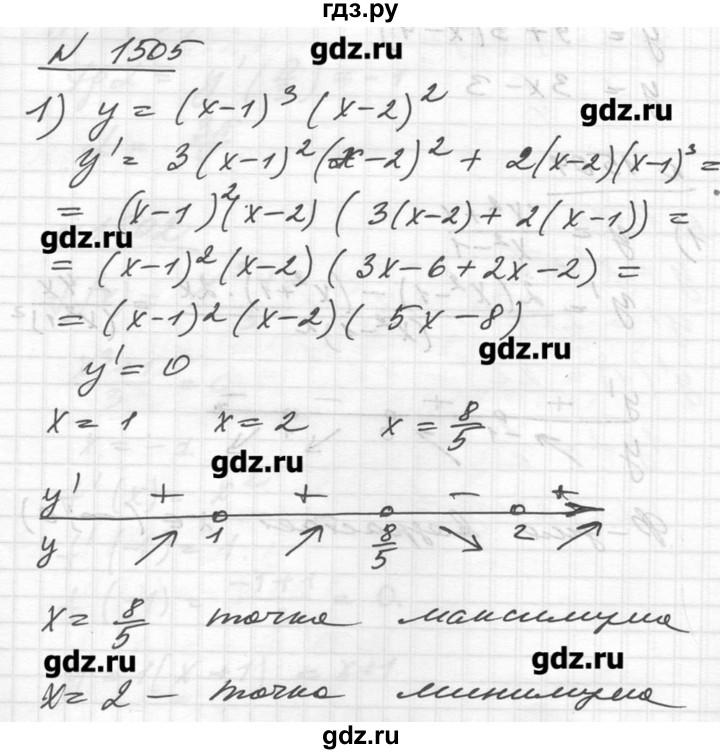 гдз.ру
gdz.ru
№ 1505
gdz.ru
1) y = (x-1)³ (x-2)²
y' = 3(x-1)²(x-2)² + 2(x-2)(x-1)³ =
= (x-1)²(x-2) (3(x-2) + 2(x-1)) =
gdz.ru
= (x-1)² (x-2) (3x-6+2x-2) =
= (x-1)2 (x-2)( 5x-8)
gdz.ru
y' = 0
x = 1 x = 2 x = 8/5
gdz.ru
y' + + - +
1 8/5 2
y ↗ ↗ ↘ ↗
x = 8/5 точка максимума
gdz.ru gdz.ru
x = 2 - точка минимума
gdz.ru